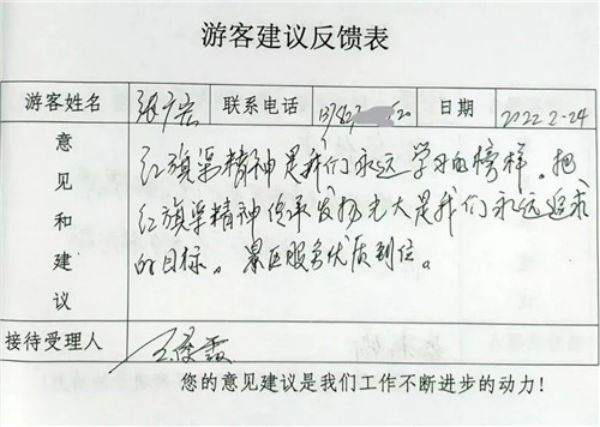 游客建议反馈表
游客姓名 张广宏 联系电话 日期 2022.2.24
意见和建议
红旗渠精神是我们永远学习的榜样。把
红旗渠精神传承发扬光大是我们永远追求
的目标。景区服务优质到位。
接待受理人 王
您的意见建议是我们工作不断进步的动力!